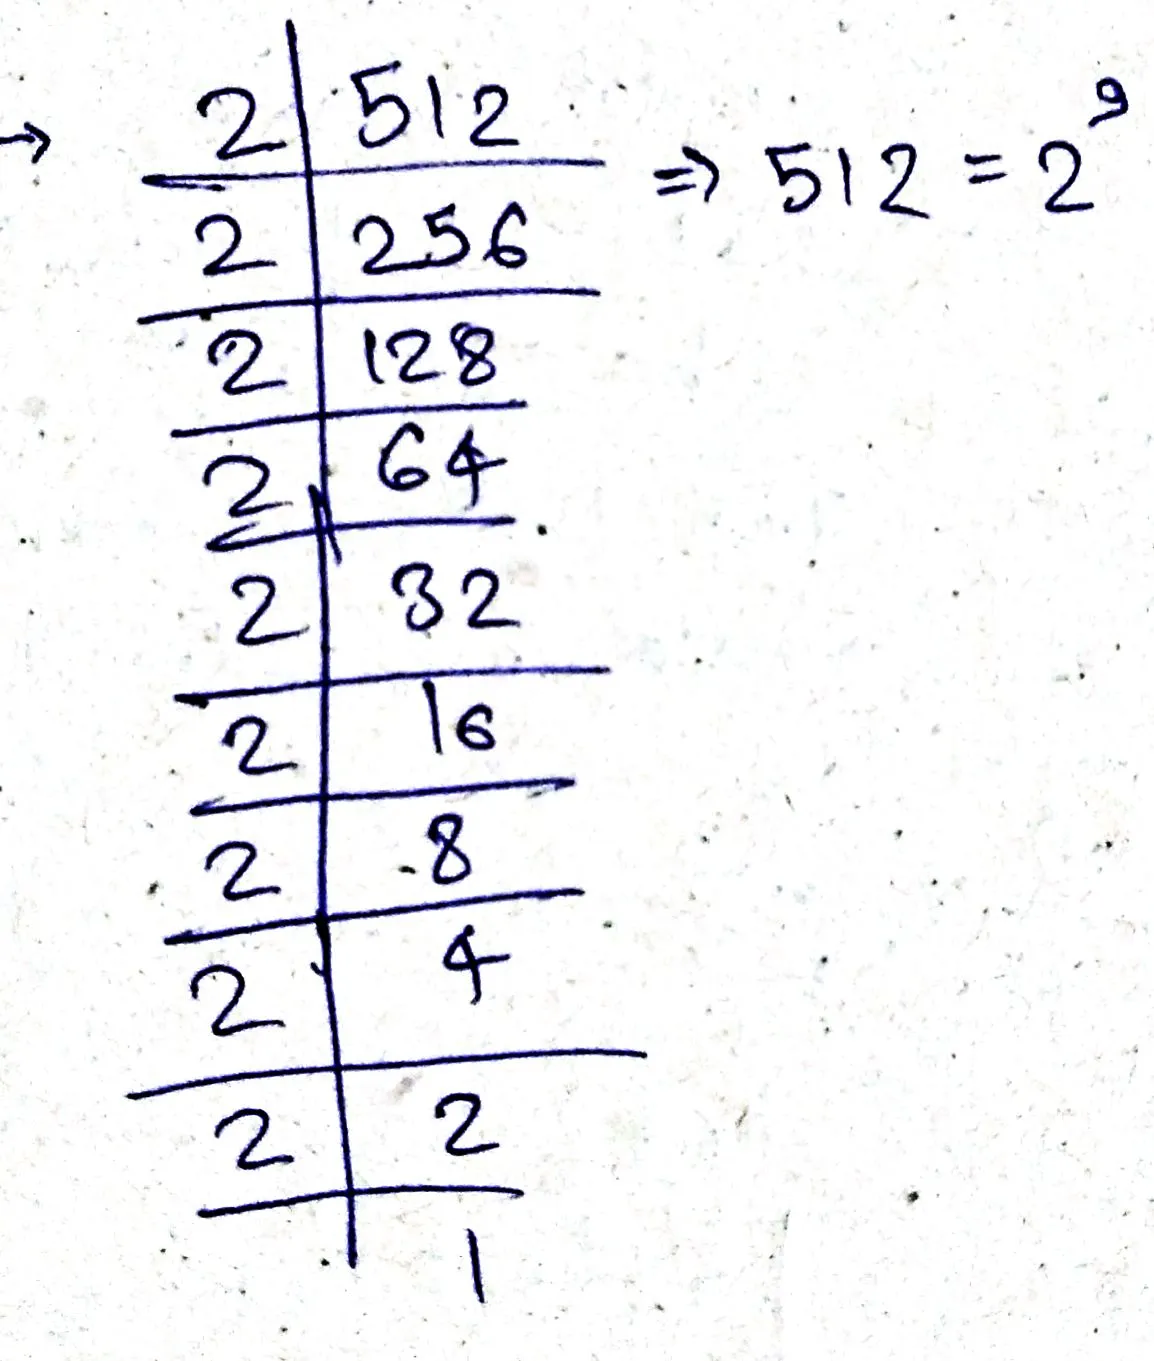 → 2 | 512 ⇒ 512 = 2⁹
2 | 256
2 | 128
2 | 64
2 | 32
2 | 16
2 | 8
2 | 4
2 | 2
| 1